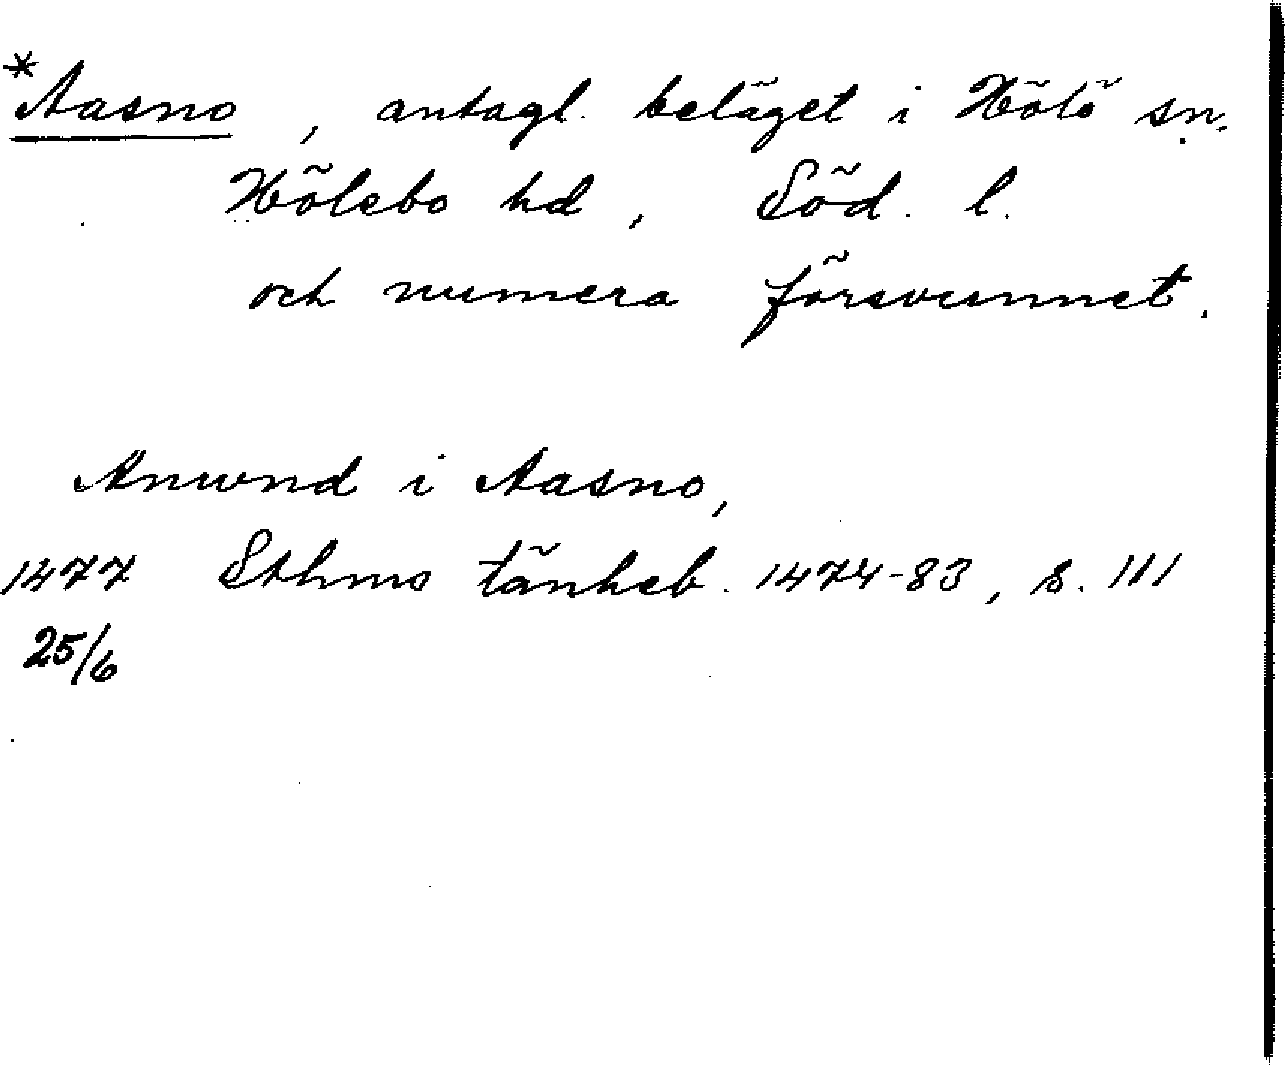 *Aasno, antagl. beläget i Hölö sn.
Hölebo hd, Söd. l.
och numera försvunnet.
Anwnd i Aasno,
1477 Sthms tänkeb. 1474-83, s. 111
25/6